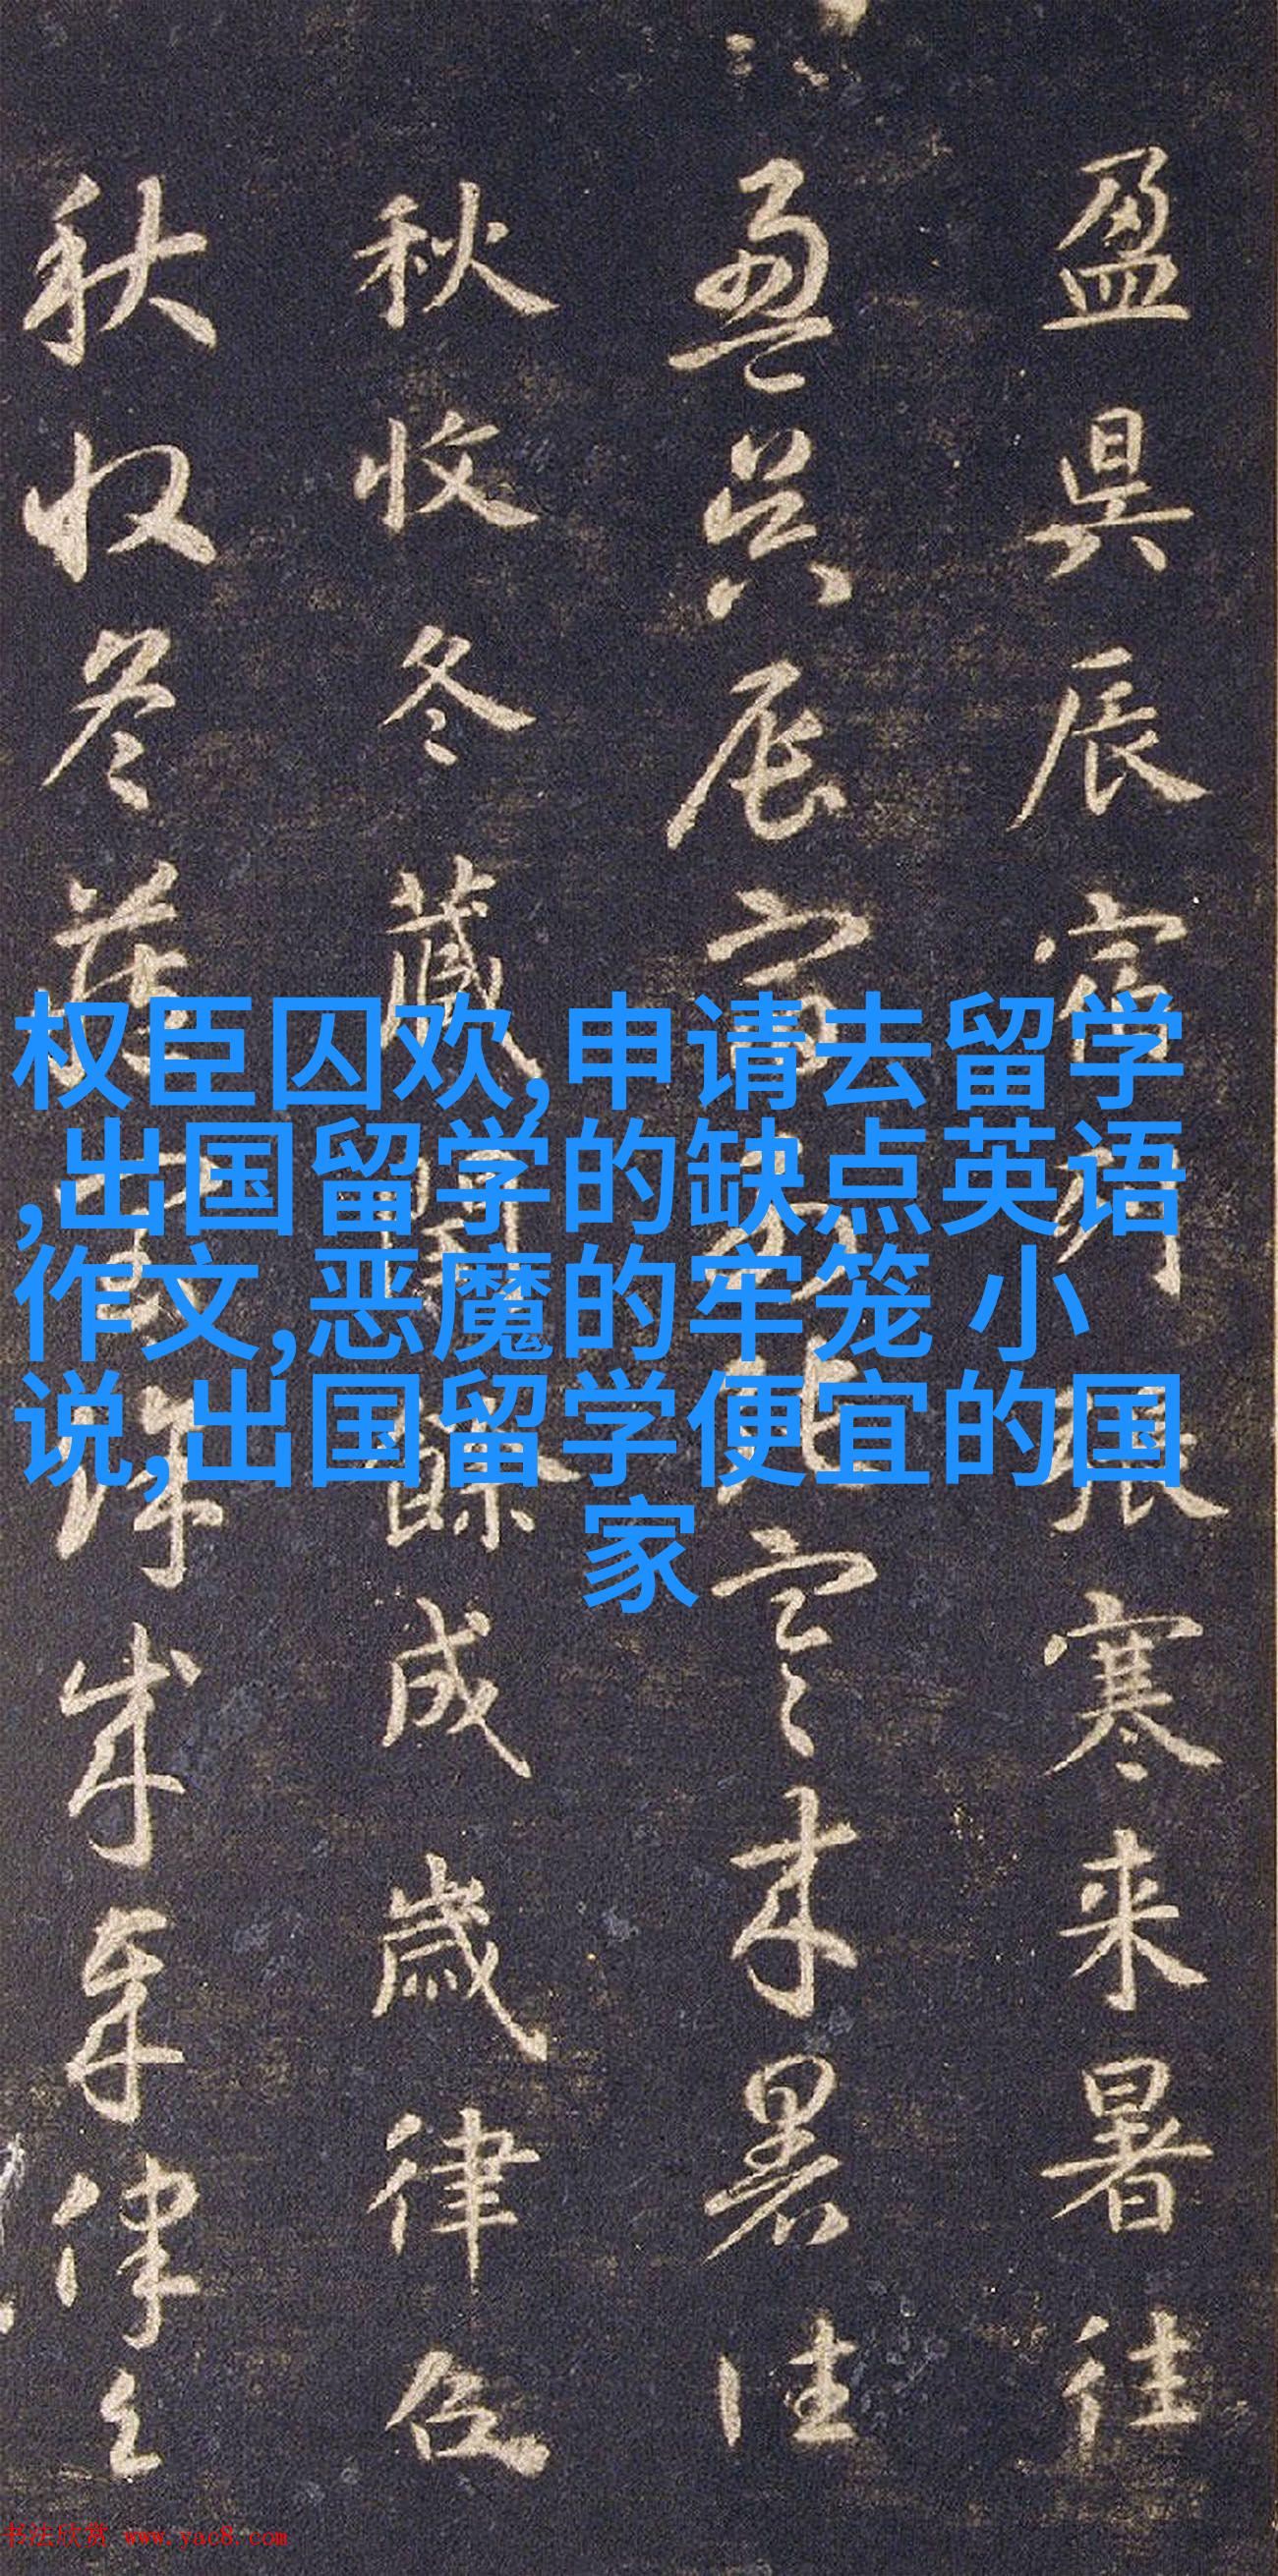 盈昃辰宿列张寒来暑往
盈昃辰宿列张寒来暑往
秋收冬藏闰餘成歲律吕
秋收冬藏闰餘成歲律吕
权臣囚欢,申请去留学
,出国留学的缺点英语
作文,恶魔的牢笼 小
说,出国留学便宜的国
家
书法欣赏 www.yac8.com